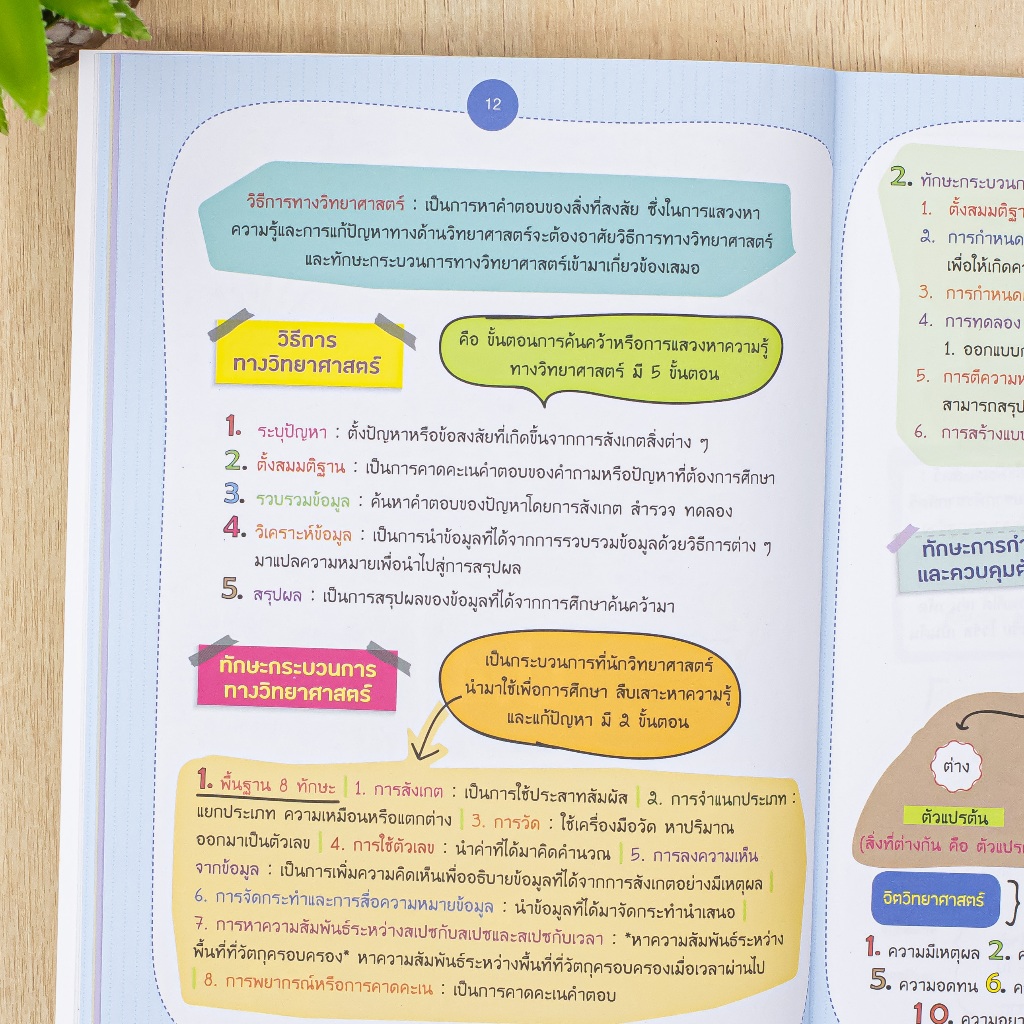 12
วิธีการทางวิทยาศาสตร์ : เป็นการหาคำตอบของสิ่งที่สงสัย ซึ่งในการแสวงหา
ความรู้และการแก้ปัญหาทางด้านวิทยาศาสตร์จะต้องอาศัยวิธีการทางวิทยาศาสตร์
และทักษะกระบวนการทางวิทยาศาสตร์เข้ามาเกี่ยวข้องเสมอ
วิธีการ
ทางวิทยาศาสตร์
คือ ขั้นตอนการค้นคว้าหรือการแสวงหาความรู้
ทางวิทยาศาสตร์ มี 5 ขั้นตอน
1. ระบุปัญหา : ตั้งปัญหาหรือข้อสงสัยที่เกิดขึ้นจากการสังเกตสิ่งต่าง ๆ
2. ตั้งสมมติฐาน : เป็นการคาดคะเนคำตอบของคำถามหรือปัญหาที่ต้องการศึกษา
3. รวบรวมข้อมูล : ค้นหาคำตอบของปัญหาโดยการสังเกต สำรวจ ทดลอง
4. วิเคราะห์ข้อมูล : เป็นการนำข้อมูลที่ได้จากการรวบรวมข้อมูลด้วยวิธีการต่าง ๆ
มาแปลความหมายเพื่อนำไปสู่การสรุปผล
5. สรุปผล : เป็นการสรุปผลของข้อมูลที่ได้จากการศึกษาค้นคว้ามา
ทักษะกระบวนการ
ทางวิทยาศาสตร์
เป็นกระบวนการที่นักวิทยาศาสตร์
นำมาใช้เพื่อการศึกษา สืบเสาะหาความรู้
และแก้ปัญหา มี 2 ขั้นตอน
1. พื้นฐาน 8 ทักษะ | 1. การสังเกต : เป็นการใช้ประสาทสัมผัส | 2. การจำแนกประเภท :
แยกประเภท ความเหมือนหรือแตกต่าง | 3. การวัด : ใช้เครื่องมือวัด หาปริมาณ
ออกมาเป็นตัวเลข | 4. การใช้ตัวเลข : นำค่าที่ได้มาคิดคำนวณ | 5. การลงความเห็น
จากข้อมูล : เป็นการเพิ่มความคิดเห็นเพื่ออธิบายข้อมูลที่ได้จากการสังเกตอย่างมีเหตุผล |
6. การจัดกระทำและการสื่อความหมายข้อมูล : นำข้อมูลที่ได้มาจัดกระทำนำเสนอ |
7. การหาความสัมพันธ์ระหว่างสเปซกับสเปซและสเปซกับเวลา : *หาความสัมพันธ์ระหว่าง
พื้นที่ที่วัตถุครอบครอง* หาความสัมพันธ์ระหว่างพื้นที่ที่วัตถุครอบครองเมื่อเวลาผ่านไป
| 8. การพยากรณ์หรือการคาดคะเน : เป็นการคาดคะเนคำตอบ
2. ทักษะกระบวน
1. ตั้งสมมติฐา
2. การกำหนด
เพื่อให้เกิด
3. การกำหนด
4. การทดลอง
1. ออกแบบ
5. การตีความ
สามารถสรุป
6. การสร้างแบบ
ทักษะการ
และควบคุม
ต่าง
ตัวแปรต้น
(สิ่งที่ต่างกัน คือ ตัวแปร
จิตวิทยาศาสตร์
1. ความมีเหตุผล 2.
5. ความอดทน 6.
10. ความอยา